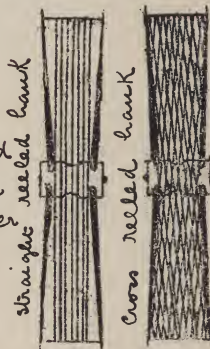 Straight reeled hank
Cross relled hank